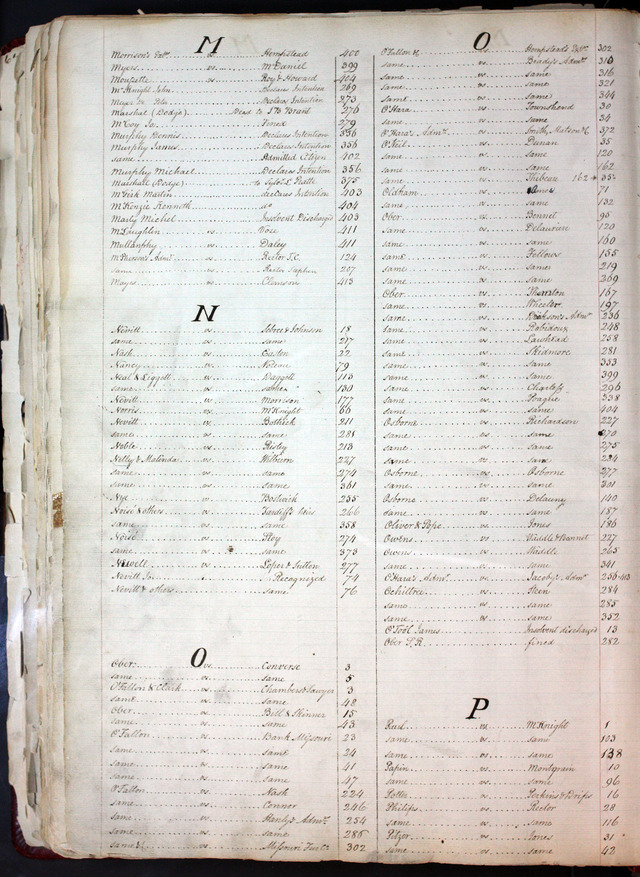 M
Morrison's Exr. vs. Hempstead 400
Myers vs. McDaniel 399
Mousette vs. Roy & Howard 404
McKnight John Declares Intention 269
Declars Intention 273
Marshal (Dodge) Deed to Jno Brant 276
McCoy Jo. Fined 279
Murphy Dennis Declares Intention 336
Murphy James Declars Intention 356
same Admitted Citizen 402
Murphy Michael Declars Intention 356
Marshall (Dodge) to 375
Martin declares Intention 403
McKenzie Kenneth do 404
Marly Michel Insolvent Discharged 403
McLaughlin vs. Vose 411
Mullanphy vs. Daley 411
McPherson's Admr. vs. Rector T.C. 124
same vs. Rector Stephen 207
Mayes vs. Clemson 413
N
Nevitt vs. & Johnson 18
same vs. same 217
Nash vs. Easton 22
Nancy vs. 79
Neal & Liggett vs. Daggett 113
same vs. same 130
Nevitt vs. Morrison 177
Norris vs. McKnight 66
Nevitt vs. Bostick 211
same vs. same 281
Noble vs. Risley 213
Nelly & Malinda vs. Milburn 227
same vs. same 274
same vs. same 361
Nye vs. Bostwick 235
Noise & others vs. Tardiff's 266
same vs. same 358
Noise vs. Roy 274
same vs. same 373
Newell vs. Loper & Sutton 277
Nevitt Jo. Recognized 74
Nevitt & others same 76
O
Ober vs. Converse 3
same vs. same 5
O'Fallon & Clark vs. Chambers & Sawyer 3
same vs. same 48
Ober vs. Bill & Skinner 15
same vs. same 43
O'Fallon vs. Bank Missouri 23
same vs. same 24
same vs. same 41
same vs. same 47
O'Fallon vs. Nash 224
same vs. Connor 246
same vs. Hanly's Admr. 254
same vs. same 285
same vs. Missouri 302
O
O'Fallon vs. Hempstead's Exr. 302
same vs. Brady's Admr. 310
same vs. same 316
same vs. same 321
same vs. same 344
O'Hara vs. Townshend 30
same vs. same 34
O'Hara's Admr. vs. Smith, Matson 372
O'Neil vs. Dunan 35
same vs. same 120
same vs. same 162
same vs. Thibeau 162 352
Oldham vs. Ames 71
same vs. same 132
Ober vs. Bennet 95
same vs. Delauriere 120
same vs. same 160
same vs. Fellows 135
same vs. same 219
same vs. same 369
Ober vs. Thornton 167
same vs. Wheeler 197
same vs. Admr. 236
same vs. Robidoux 248
same vs. Lawhead 258
same vs. Skidmore 281
same vs. same 353
same vs. same 399
same vs. Charless 296
same vs. Teaghe 338
same vs. same 404
Osborne vs. Richardson 227
same vs. same 270
same vs. same 275
same vs. same 284
Osborne vs. Osborne 277
same vs. same 301
Osborne vs. Delauny 140
same vs. same 187
Oliver & Pope vs. Jones 186
Owens vs. Waddle & Bannet 227
Owens vs. Waddle 265
same vs. same 341
O'Hara's Admr. vs. Jacoby's Admr. 256 413
Ochiltree vs. Steen 284
same vs. same 285
same vs. same 352
O'Tool James Insolvent discharged 13
Ober S.R. fined 282
P
Paul vs. McKnight 1
same vs. same 103
same vs. same 138
Papin vs. Montgrain 10
same vs. same 96
Potter vs. Perkins & Drips 16
Philips vs. Rector 28
same vs. same 116
Pilzer vs. Jones 31
same vs. same 42